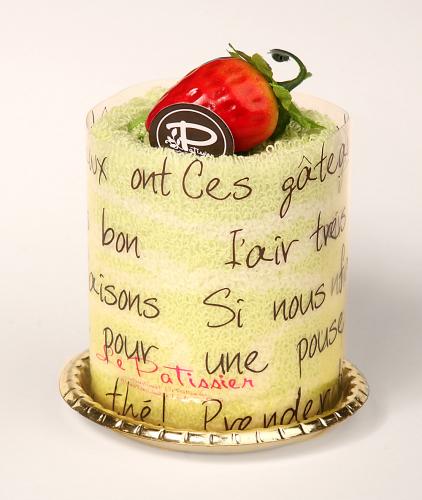 P
ux ont Ces gâtea
bon l'air très
aisons Si nous
pour une pouse
Le Patissier
thé! Prender